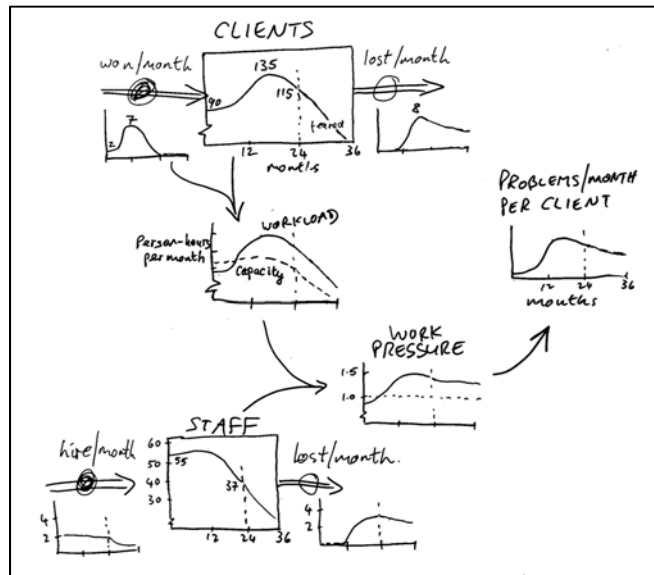 CLIENTS
won/month
lost/month
135
90
115
feared
12
24
36
months
2
7
8
WORKLOAD
Person-hours
per month
Capacity
PROBLEMS/MONTH
PER CLIENT
12
24
36
months
WORK
PRESSURE
1.5
1.0
STAFF
hire/month
lost/month.
60
50
40
30
55
37
12
24
36
4
2
4
2